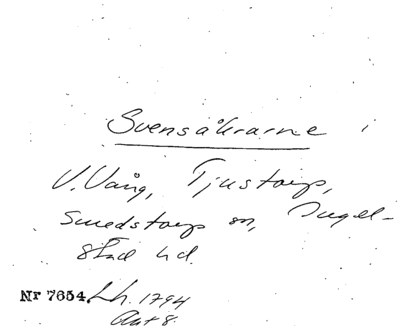 Svensåkrarne
V. Vång, Tjustorp,
Smedstorps sn, Ingel-
stad hd.
Nr 7654. Lh. 1794
Akt 8.